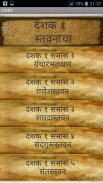 21:37
दशक १
स्तवनाचा
दशक १ समास १
ग्रंथारंभलक्षण
दशक १ समास २
गणेशस्तवन
दशक १ समास ३
शारदास्तवन
दशक १ समास ४
सद्गुरुस्तवन
दशक १ समास ५
संतस्तवन